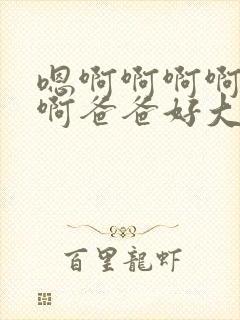 嗯啊啊啊啊
啊爸爸好大
百里龍虾